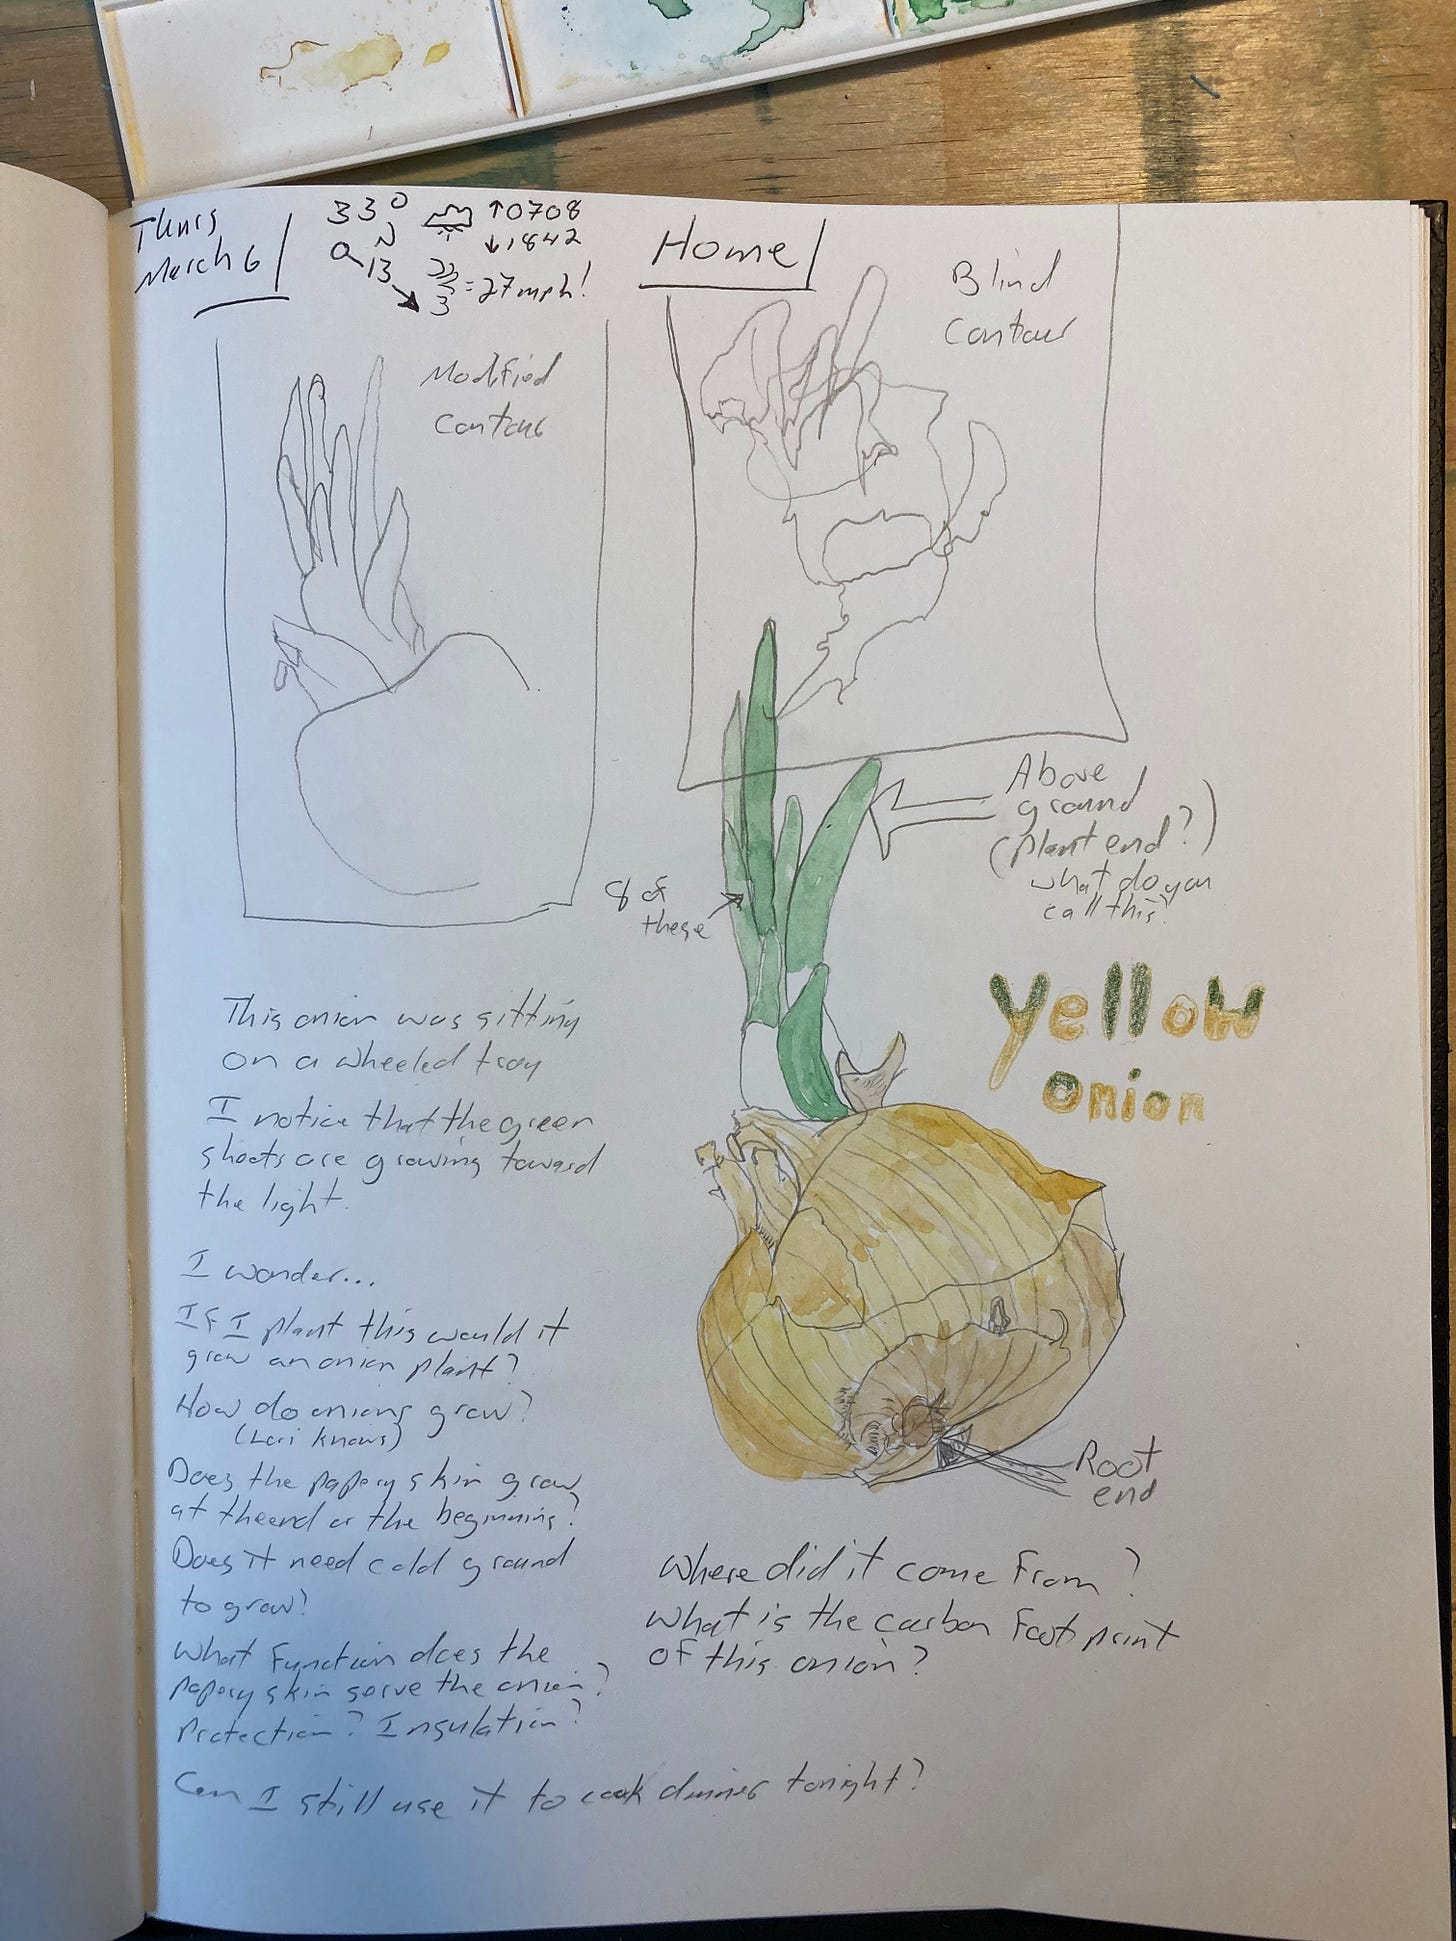 Thurs
March 6
33°
↑0708
↓1842
13
3 = 27mph!
Home
Modified
contour
Blind
Contour
Above
ground
(plant end?)
what do you
call this?
8 of
these
Yellow
onion
This onion was sitting
on a wheeled tray
I notice that the green
shoots are growing toward
the light.
I wonder...
If I plant this would it
grow an onion plant?
How do onions grow?
(Lori knows)
Does the papery skin grow
at the end or the beginning?
Does it need cold ground
to grow?
What function does the
papery skin serve the onion?
Protection? Insulation?
Can I still use it to cook dinner tonight?
Root
end
Where did it come from?
What is the carbon footprint
of this onion?